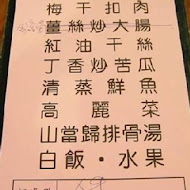 梅干扣肉
薑絲炒大腸
紅油干絲
丁香炒苦瓜
清蒸鮮魚
高麗菜
山當歸排骨湯
白飯·水果